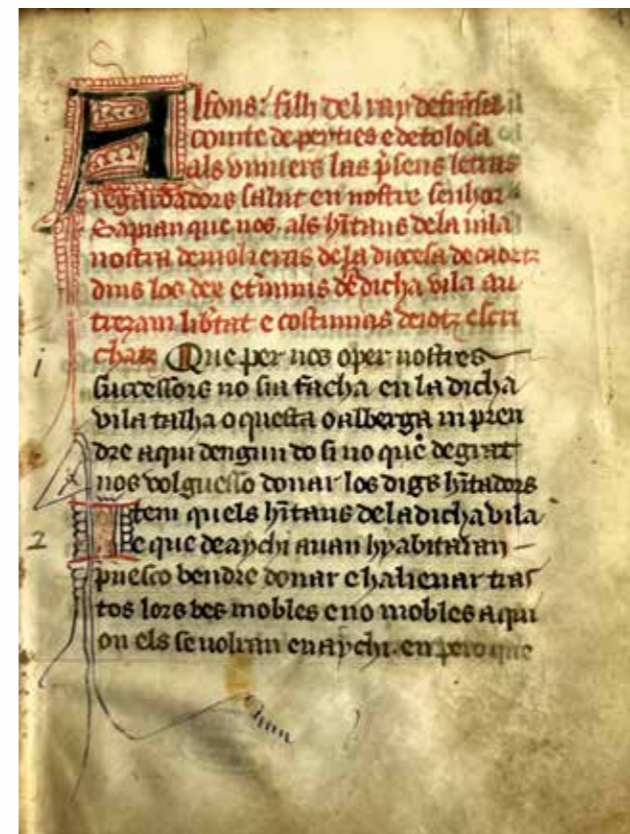 Alfons: filh del ray de fransa
comte de peyties e de tolosa
als univers las p̄sens letras
regardadors salut en nostre senhor
Sapian que nos als h̄itans de la vila
nostra de molieras de la diocesa de caortz
dins los dex et de dicha vila au
treyam lib̄tat e costumas dejotz escri
chas Que per nos o per nostres
successors no sia facha en la dicha
vila talha o questa o alberga ni pren
dre aqui dengun do si no que de grat
nos volguesso donar los digs h̄itadors
Item quels h̄itans de la dicha vila
e que de aychi avan hyabitaran
puesco bendre donar e halienar tras
tos lors bes mobles e no mobles aqui
on els se volran en aychi en pero que
1
2